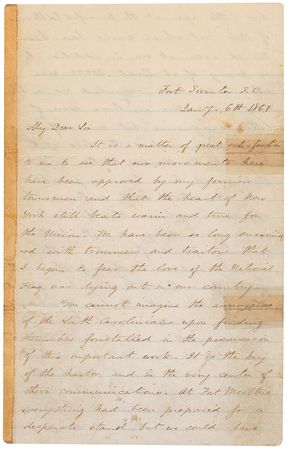 Fort Sumter S.C.
Jany. 6th 1861
My Dear Sir
It is a matter of great satisfaction
to me to see that our movements here
have been approved by my former
townsmen and that the heart of New
York still beats warm and true for
the Union. We have been so long surround
ed with trimmers and traitors that
I began to fear the love of the National
flag was dying out in our country.
You cannot imagine the annoyance
of the South Carolinians upon finding
themselves forestalled in the possession
of this important work. It is the key
of the harbor and in the very center of
their communications. At Fort Moultrie
everything had been prepared for a
desperate stand but we could have